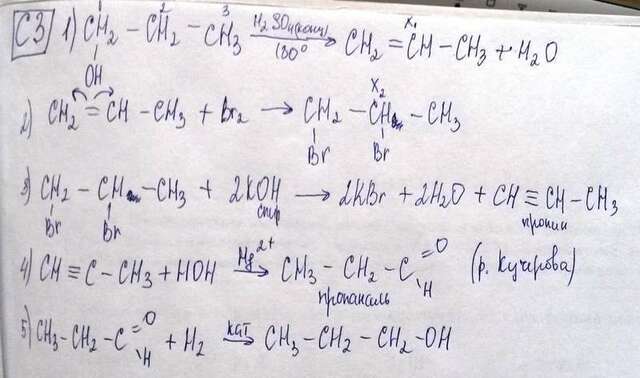 C3 1) CH₂ – CH₂ – CH₃ H₂SO₄(конц) 180° CH₂ = CH – CH₃ + H₂O
1 2 3 X₁
OH
2) CH₂ = CH – CH₃ + Br₂ → CH₂ – CH – CH₃
X₂
Br Br
3) CH₂ – CH – CH₃ + 2KOH → 2KBr + 2H₂O + CH ≡ CH – CH₃
Br Br спир пропин
4) CH ≡ C – CH₃ + HOH Hg²⁺ → CH₃ – CH₂ – C =O H (р. Кучерова)
пропаналь
5) CH₃ – CH₂ – C =O H + H₂ кат → CH₃ – CH₂ – CH₂ – OH